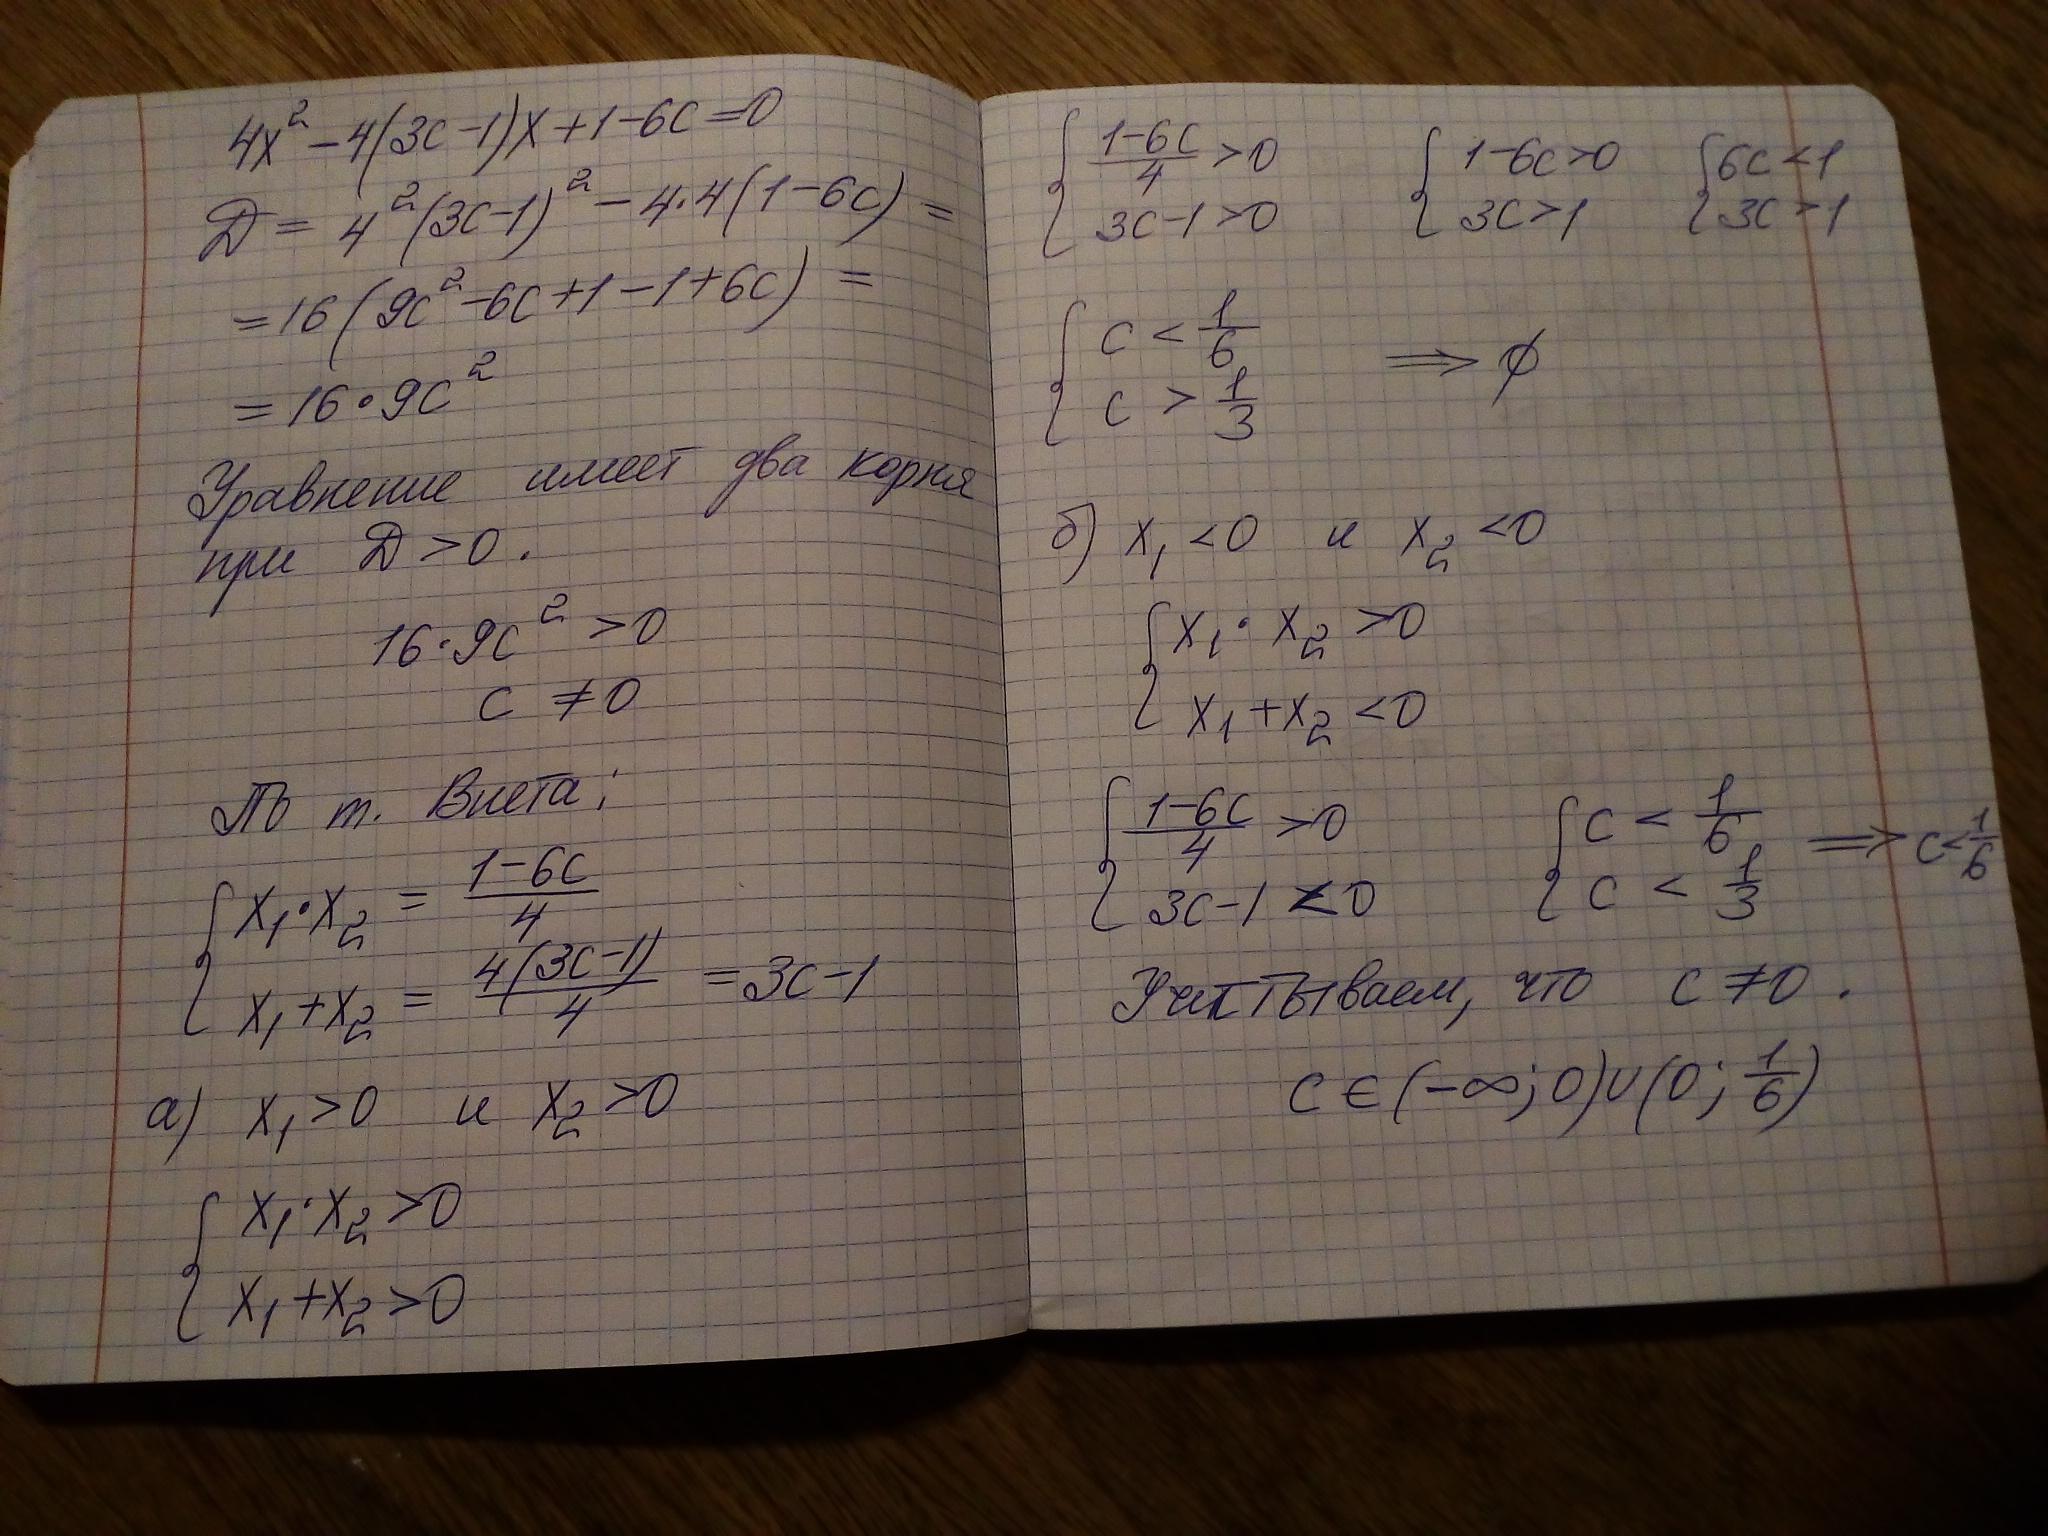 4x² − 4(3c−1)x + 1−6c = 0
D = 4²(3c−1)² − 4·4(1−6c) =
= 16(9c² −6c+1−1+6c) =
= 16·9c²
Уравнение имеет два корня
при D > 0.
16·9c² > 0
c ≠ 0
По т. Виета:
{ x₁·x₂ = (1−6c)/4
x₁+x₂ = 4(3c−1)/4 = 3c−1
а) x₁>0 и x₂>0
{ x₁·x₂ >0
x₁+x₂ >0
{ (1−6c)/4 >0 { 1−6c>0 { 6c<1
3c−1>0 3c>1 3c>1
{ c < 1/6
c > 1/3 ⟹ ∅
б) x₁ <0 и x₂ <0
{ x₁·x₂ >0
x₁+x₂ <0
{ (1−6c)/4 >0 { c < 1/6 ⟹ c<1/6
3c−1 <0 c < 1/3
Учитываем, что c ≠0.
c ∈ (−∞; 0)∪(0; 1/6)